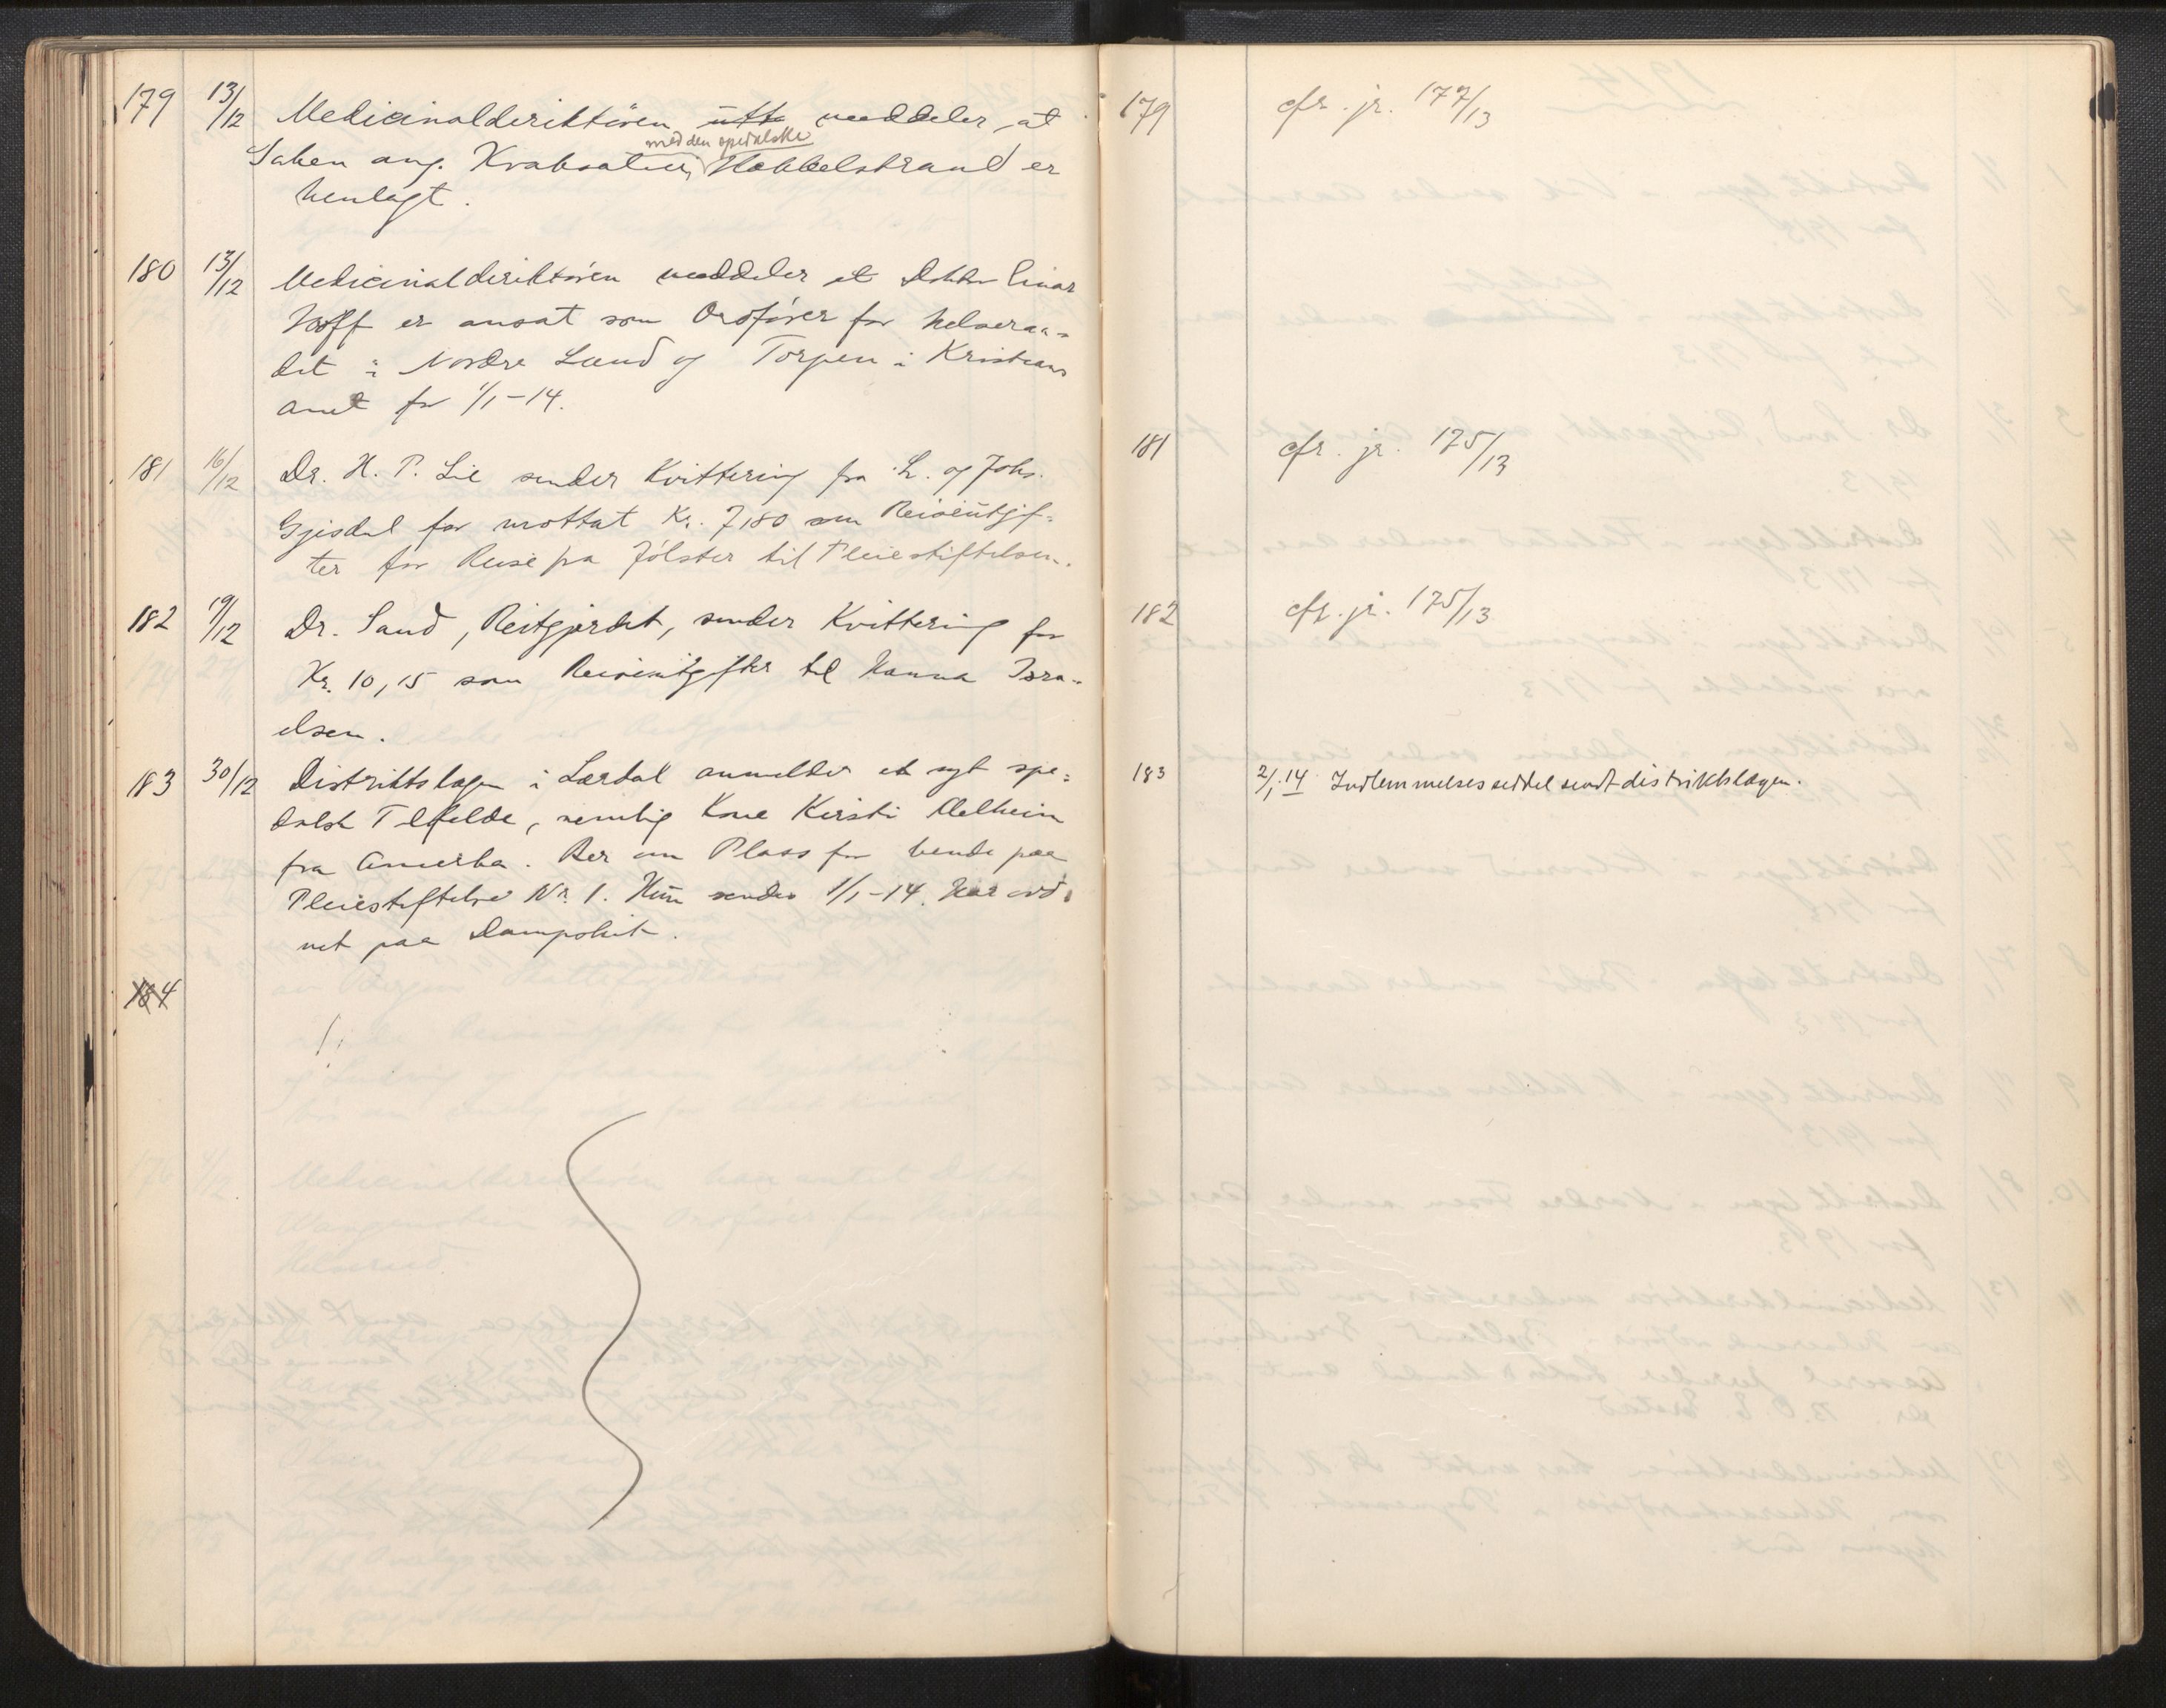 179 13/12 Medicinaldirektören meddeler at
med den spedalske
Saken ang. Hobbelstrand er
henlagt.
180 13/12 Medicinaldirektören meddeler at Doktor Einar
Hoff er ansat som Ordfører for helseraa-
det i Nordre Land og Torpen i Kristians
amt fra 1/1-14.
181 16/12 Dr. H. P. Lie sender Kvittering fra L. og Johs.
Gjesdal for mottat Kr. 7,80 som Reiseutgif-
ter for Reise fra Jölster til Pleiestiftelsen.
182 19/12 Dr. Sand, Reitgjerdet, sender Kvittering for
Kr. 10,15 som Reiseutgifter til Hanna Isra-
elsen.
183 30/12 Distriktslægen i Lærdal anmelder et nyt spe-
dalsk Tilfelde, nemlig Kone Kirsti Melheim
fra Amerika. Ber om Plass for hende paa
Pleiestiftelse Nr. 1. Hun sendes 1/1-14. Har ord-
net paa Dampskib.
184
179 cfr. jr. 177/13
181 cfr. jr. 175/13
182 cfr. jr. 175/13
183 2/1 14 Indlemmelsesseddel sendt distriktslægen.